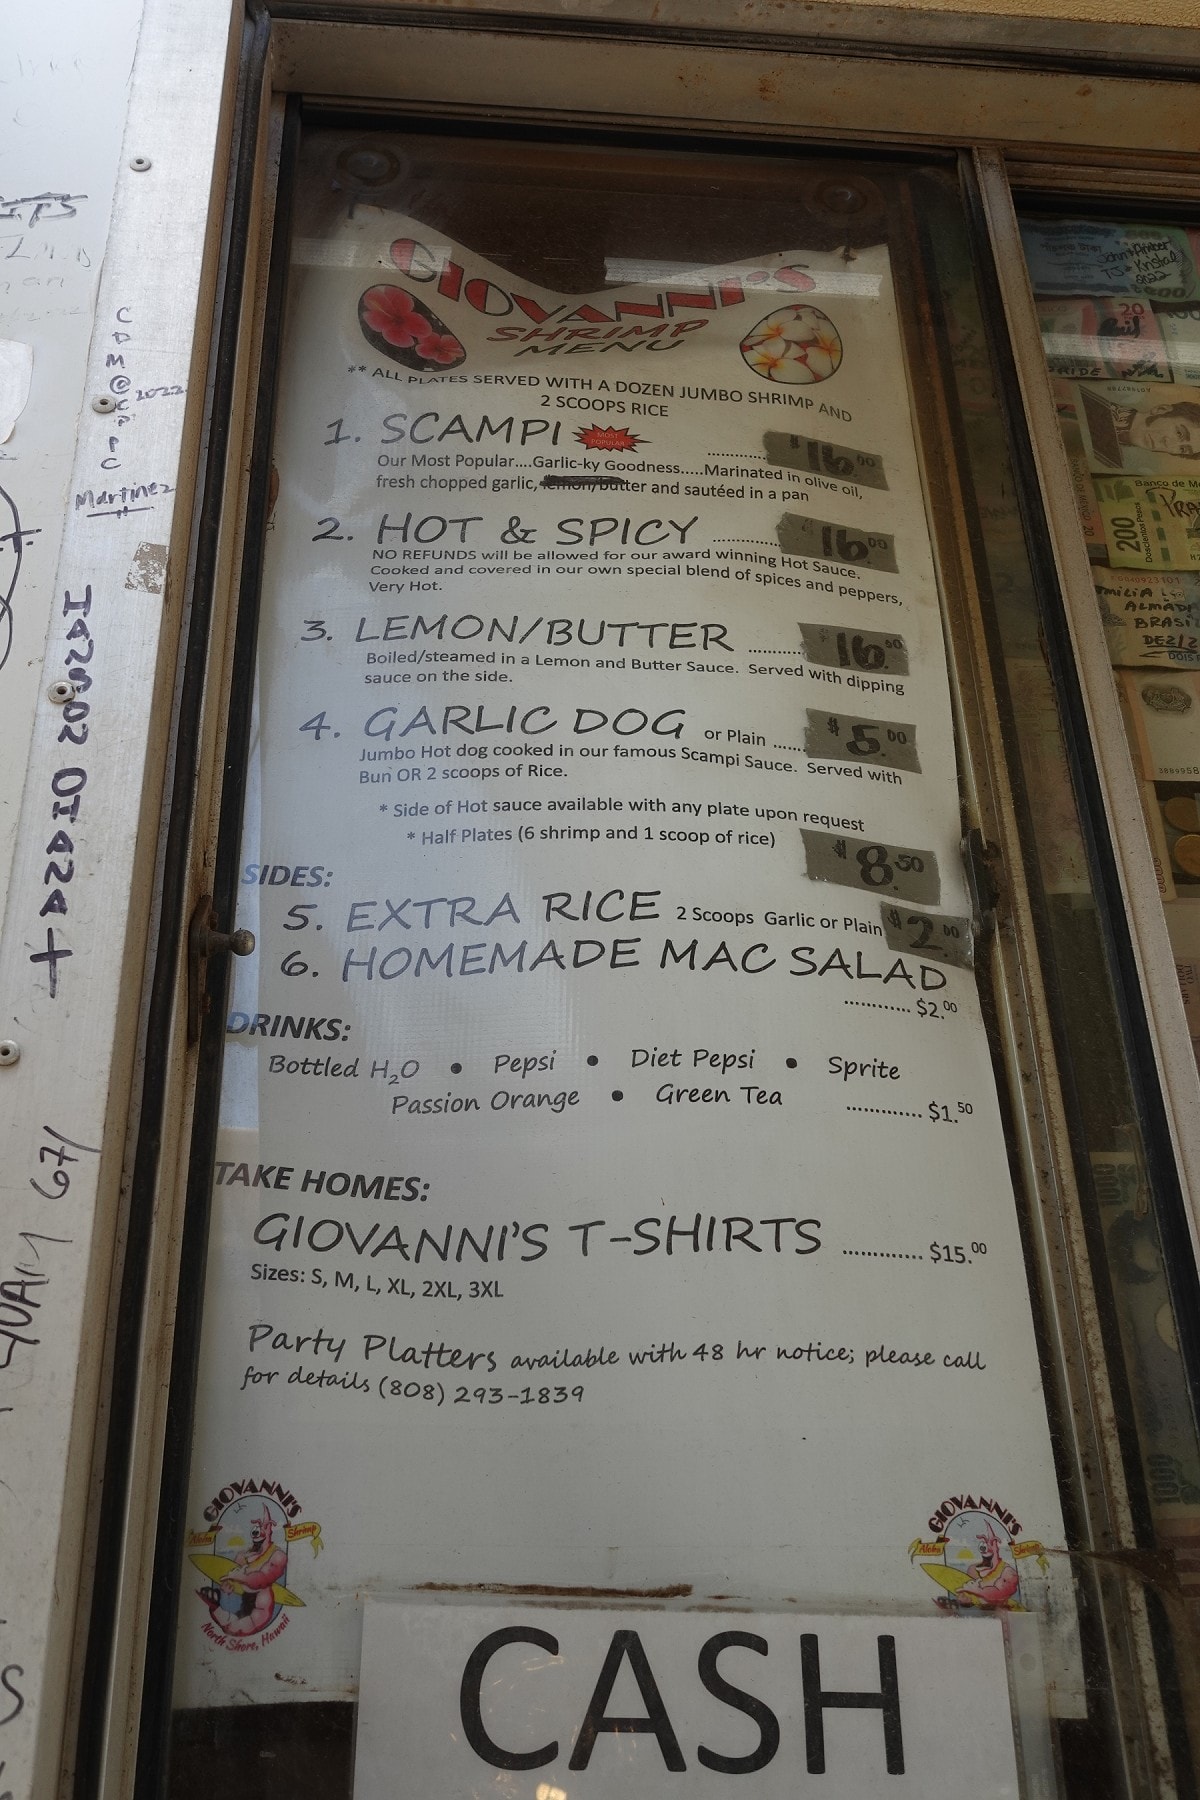 GIOVANNI'S
SHRIMP
MENU
** ALL PLATES SERVED WITH A DOZEN JUMBO SHRIMP AND
2 SCOOPS RICE
1. SCAMPI MOST POPULAR ........... $16.00
Our Most Popular....Garlic-ky Goodness.....Marinated in olive oil,
fresh chopped garlic, lemon/butter and sautéed in a pan
2. HOT & SPICY ............ $16.00
NO REFUNDS will be allowed for our award winning Hot Sauce.
Cooked and covered in our own special blend of spices and peppers,
Very Hot.
3. LEMON/BUTTER .......... $16.00
Boiled/steamed in a Lemon and Butter Sauce. Served with dipping
sauce on the side.
4. GARLIC DOG or Plain ....... $5.00
Jumbo Hot dog cooked in our famous Scampi Sauce. Served with
Bun OR 2 scoops of Rice.
* Side of Hot sauce available with any plate upon request
* Half Plates (6 shrimp and 1 scoop of rice) $8.50
SIDES:
5. EXTRA RICE 2 Scoops Garlic or Plain $2.00
6. HOMEMADE MAC SALAD
............ $2.00
DRINKS:
Bottled H2O • Pepsi • Diet Pepsi • Sprite
Passion Orange • Green Tea ............. $1.50
TAKE HOMES:
GIOVANNI'S T-SHIRTS ............. $15.00
Sizes: S, M, L, XL, 2XL, 3XL
Party Platters available with 48 hr notice; please call
for details (808) 293-1839
GIOVANNI'S
Aloha Shrimp
North Shore, Hawaii
GIOVANNI'S
Aloha Shrimp
CASH
2022
Martinez
67/
TJ + Kristal
8/22
20
Banco de Mé
200
Doscientos Pesos
ALMADA
BRASI
DEZ/2
DOIS